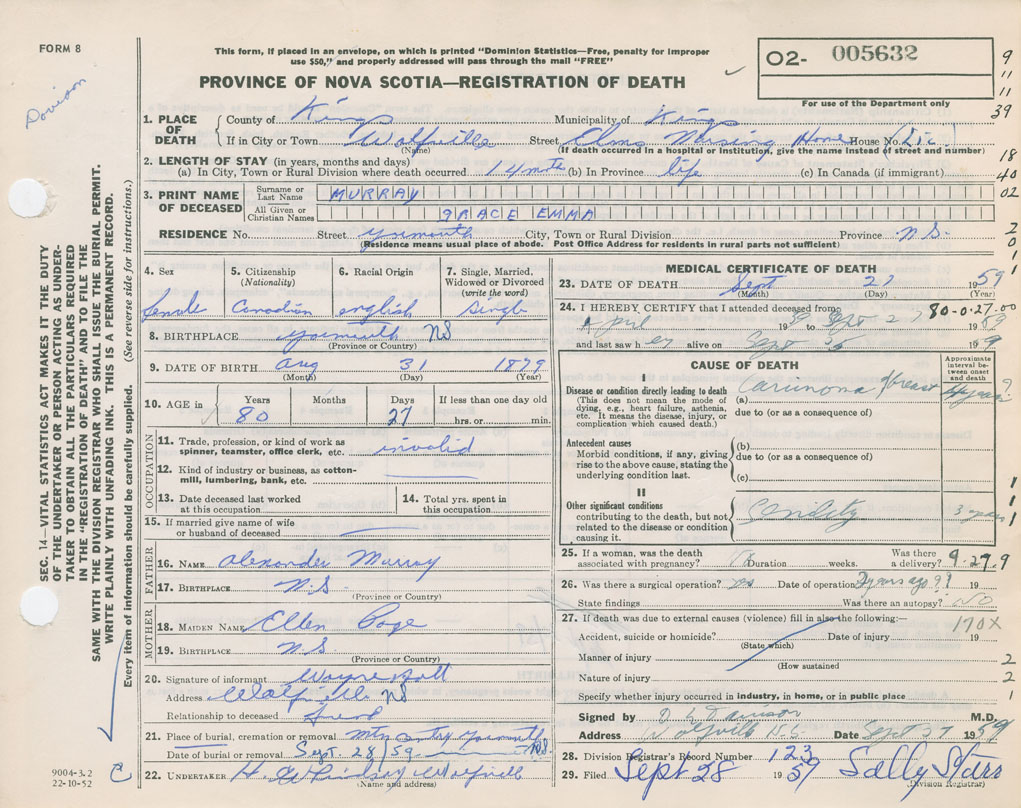 FORM 8
This form, if placed in an envelope, on which is printed "Dominion Statistics—Free, penalty for improper
use $50," and properly addressed will pass through the mail "FREE"
PROVINCE OF NOVA SCOTIA—REGISTRATION OF DEATH
O2- 005632
For use of the Department only
9
11
11
39
18
40
02
2
0
1
1
Davison
SEC. 14—VITAL STATISTICS ACT MAKES IT THE DUTY
OF THE UNDERTAKER OR PERSON ACTING AS UNDER-
TAKER TO OBTAIN ALL THE PARTICULARS REQUIRED
IN THE "REGISTRATION OF DEATH" AND TO FILE THE
SAME WITH THE DIVISION REGISTRAR WHO SHALL ISSUE THE BURIAL PERMIT.
WRITE PLAINLY WITH UNFADING INK. THIS IS A PERMANENT RECORD.
Every item of information should be carefully supplied. (See reverse side for instructions.)
1. PLACE OF DEATH
County of Kings Municipality of Kings
If in City or Town Wolfville Street Elms Nursing Home House No. (Lic.)
(Name) (If death occurred in a hospital or institution, give the name instead of street and number)
2. LENGTH OF STAY (in years, months and days)
(a) In City, Town or Rural Division where death occurred 14 mths (b) In Province life (c) In Canada (if immigrant)
3. PRINT NAME OF DECEASED
Surname or Last Name MURRAY
All Given or Christian Names GRACE EMMA
RESIDENCE No. Street Yarmouth City, Town or Rural Division Province N.S.
(Residence means usual place of abode. Post Office Address for residents in rural parts not sufficient)
4. Sex 5. Citizenship (Nationality) 6. Racial Origin 7. Single, Married, Widowed or Divorced (write the word)
female Canadian english Single
8. BIRTHPLACE Yarmouth NS
(Province or Country)
9. DATE OF BIRTH Aug 31 1879
(Month) (Day) (Year)
10. AGE in Years Months Days If less than one day old
80 27 hrs. or min.
OCCUPATION
11. Trade, profession, or kind of work as
spinner, teamster, office clerk, etc. invalid
12. Kind of industry or business, as cotton-
mill, lumbering, bank, etc.
13. Date deceased last worked at this occupation
14. Total yrs. spent in this occupation
15. If married give name of wife
or husband of deceased
FATHER
16. NAME Alexander Murray
17. BIRTHPLACE N.S.
(Province or Country)
MOTHER
18. MAIDEN NAME Ellen
19. BIRTHPLACE N.S.
(Province or Country)
20. Signature of informant Wayne
Address Wolfville NS
Relationship to deceased friend
21. Place of burial, cremation or removal Yarmouth N.S.
Date of burial or removal Sept. 28/59
22. UNDERTAKER H. W. Lindsay Wolfville
(Name and address)
9004-3.2
22-10-52
MEDICAL CERTIFICATE OF DEATH
23. DATE OF DEATH Sept 27 1959
(Month) (Day) (Year)
24. I HEREBY CERTIFY that I attended deceased from 80-0-27.00
April 19 to Sept 27 1959
and last saw her alive on Sept 19
CAUSE OF DEATH
Approximate interval between onset and death
I
Disease or condition directly leading to death
(This does not mean the mode of
dying, e.g., heart failure, asthenia,
etc. It means the disease, injury, or
complication which caused death.)
(a) Carcinoma breast years ?
due to (or as a consequence of)
Antecedent causes
Morbid conditions, if any, giving
rise to the above cause, stating the
underlying condition last.
(b)
due to (or as a consequence of)
(c)
II
Other significant conditions
contributing to the death, but not
related to the disease or condition
causing it.
Senility 3 years
1
1
25. If a woman, was the death
associated with pregnancy? Duration weeks. Was there a delivery? 9.27.9
26. Was there a surgical operation? yes Date of operation years ago ?? 19
State findings Was there an autopsy? NO
27. If death was due to external causes (violence) fill in also the following:—
170X
Accident, suicide or homicide? Date of injury 19
(State which)
Manner of injury 2
(How sustained)
Nature of injury 2
Specify whether injury occurred in industry, in home, or in public place 1
Signed by Davison M.D.
Address Wolfville N.S. Date Sept 27 1959
28. Division Registrar's Record Number 123
29. Filed Sept 28 1959 Sally Starr
(Division Registrar)